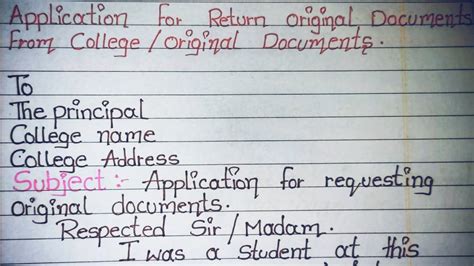 Application For Return original Documents
From College / original Documents.
To
The principal
College name
College Address
Subject :- Application for requesting
original documents.
Respected Sir / Madam.
I was a student at this